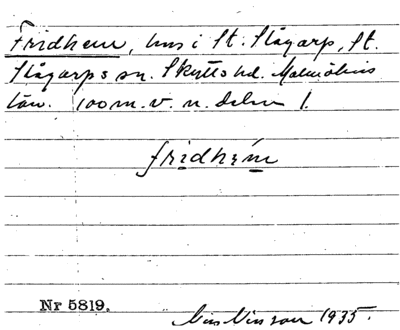 Fridhem, hus i St. Slågarp, St.
Slågarps sn. Skytts hd. Malmöhus
län. 100 m. v. n. delen 1.
fridhem
Nr 5819.
1935.